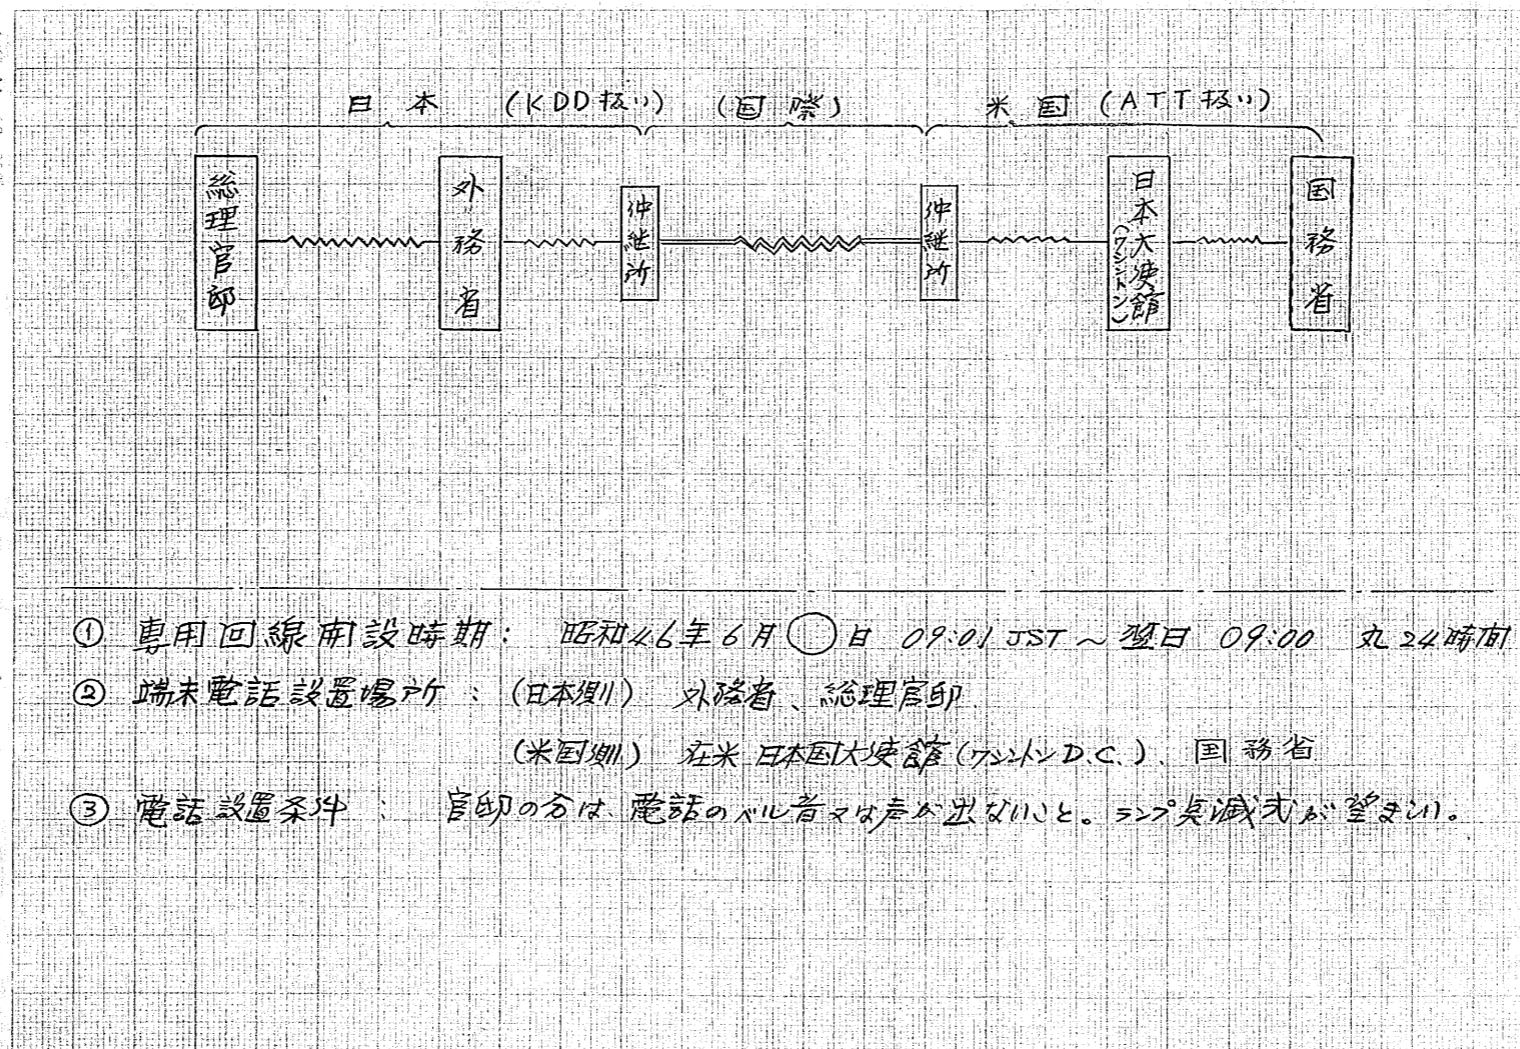 日本 (KDD扱い) (国際) 米国 (ATT扱い)
総理官邸
外務省
仲継所
仲継所
日本大使館
(ワシントン)
国務省
① 専用回線開設時期： 昭和46年6月◯日 09:01 JST～翌日 09:00 丸24時間
② 端末電話設置場所： (日本側) 外務省、総理官邸
(米国側) 在米日本国大使館(ワシントンD.C.)、国務省
③ 電話設置条件： 官邸の分は、電話のベル音又は声が出ないこと。ランプ点滅式が望ましい。